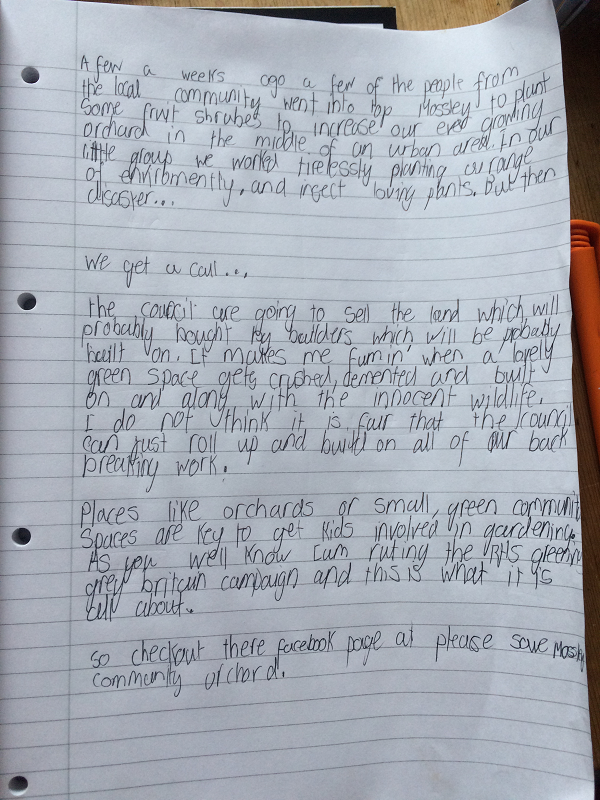 A few a weeks ago a few of the people from
the local community went into top Mossley to plant
some fruit shrubes to increase our ever growing
orchard in the middle of an urban area. In our
little group we worked tirelessly planting our range
of enviromently, and insect loving plants. But then
disaster...
We get a call...
the council are going to sell the land which will
probably bought by builders which will be probably
built on. It makes me fumin' when a lovely
green space gets crushed, demented and built
on and along with the innocent wildlife.
I do not think it is fair that the council
can just roll up and build on all of our back
breaking work.
Places like orchards or small, green communit
spaces are key to get kids involved in gardening.
As you well know I am ruting the RHS greening
grey britain campaign and this is what it is
all about.
so checkout there facebook page at please save Mossley
community orchard.